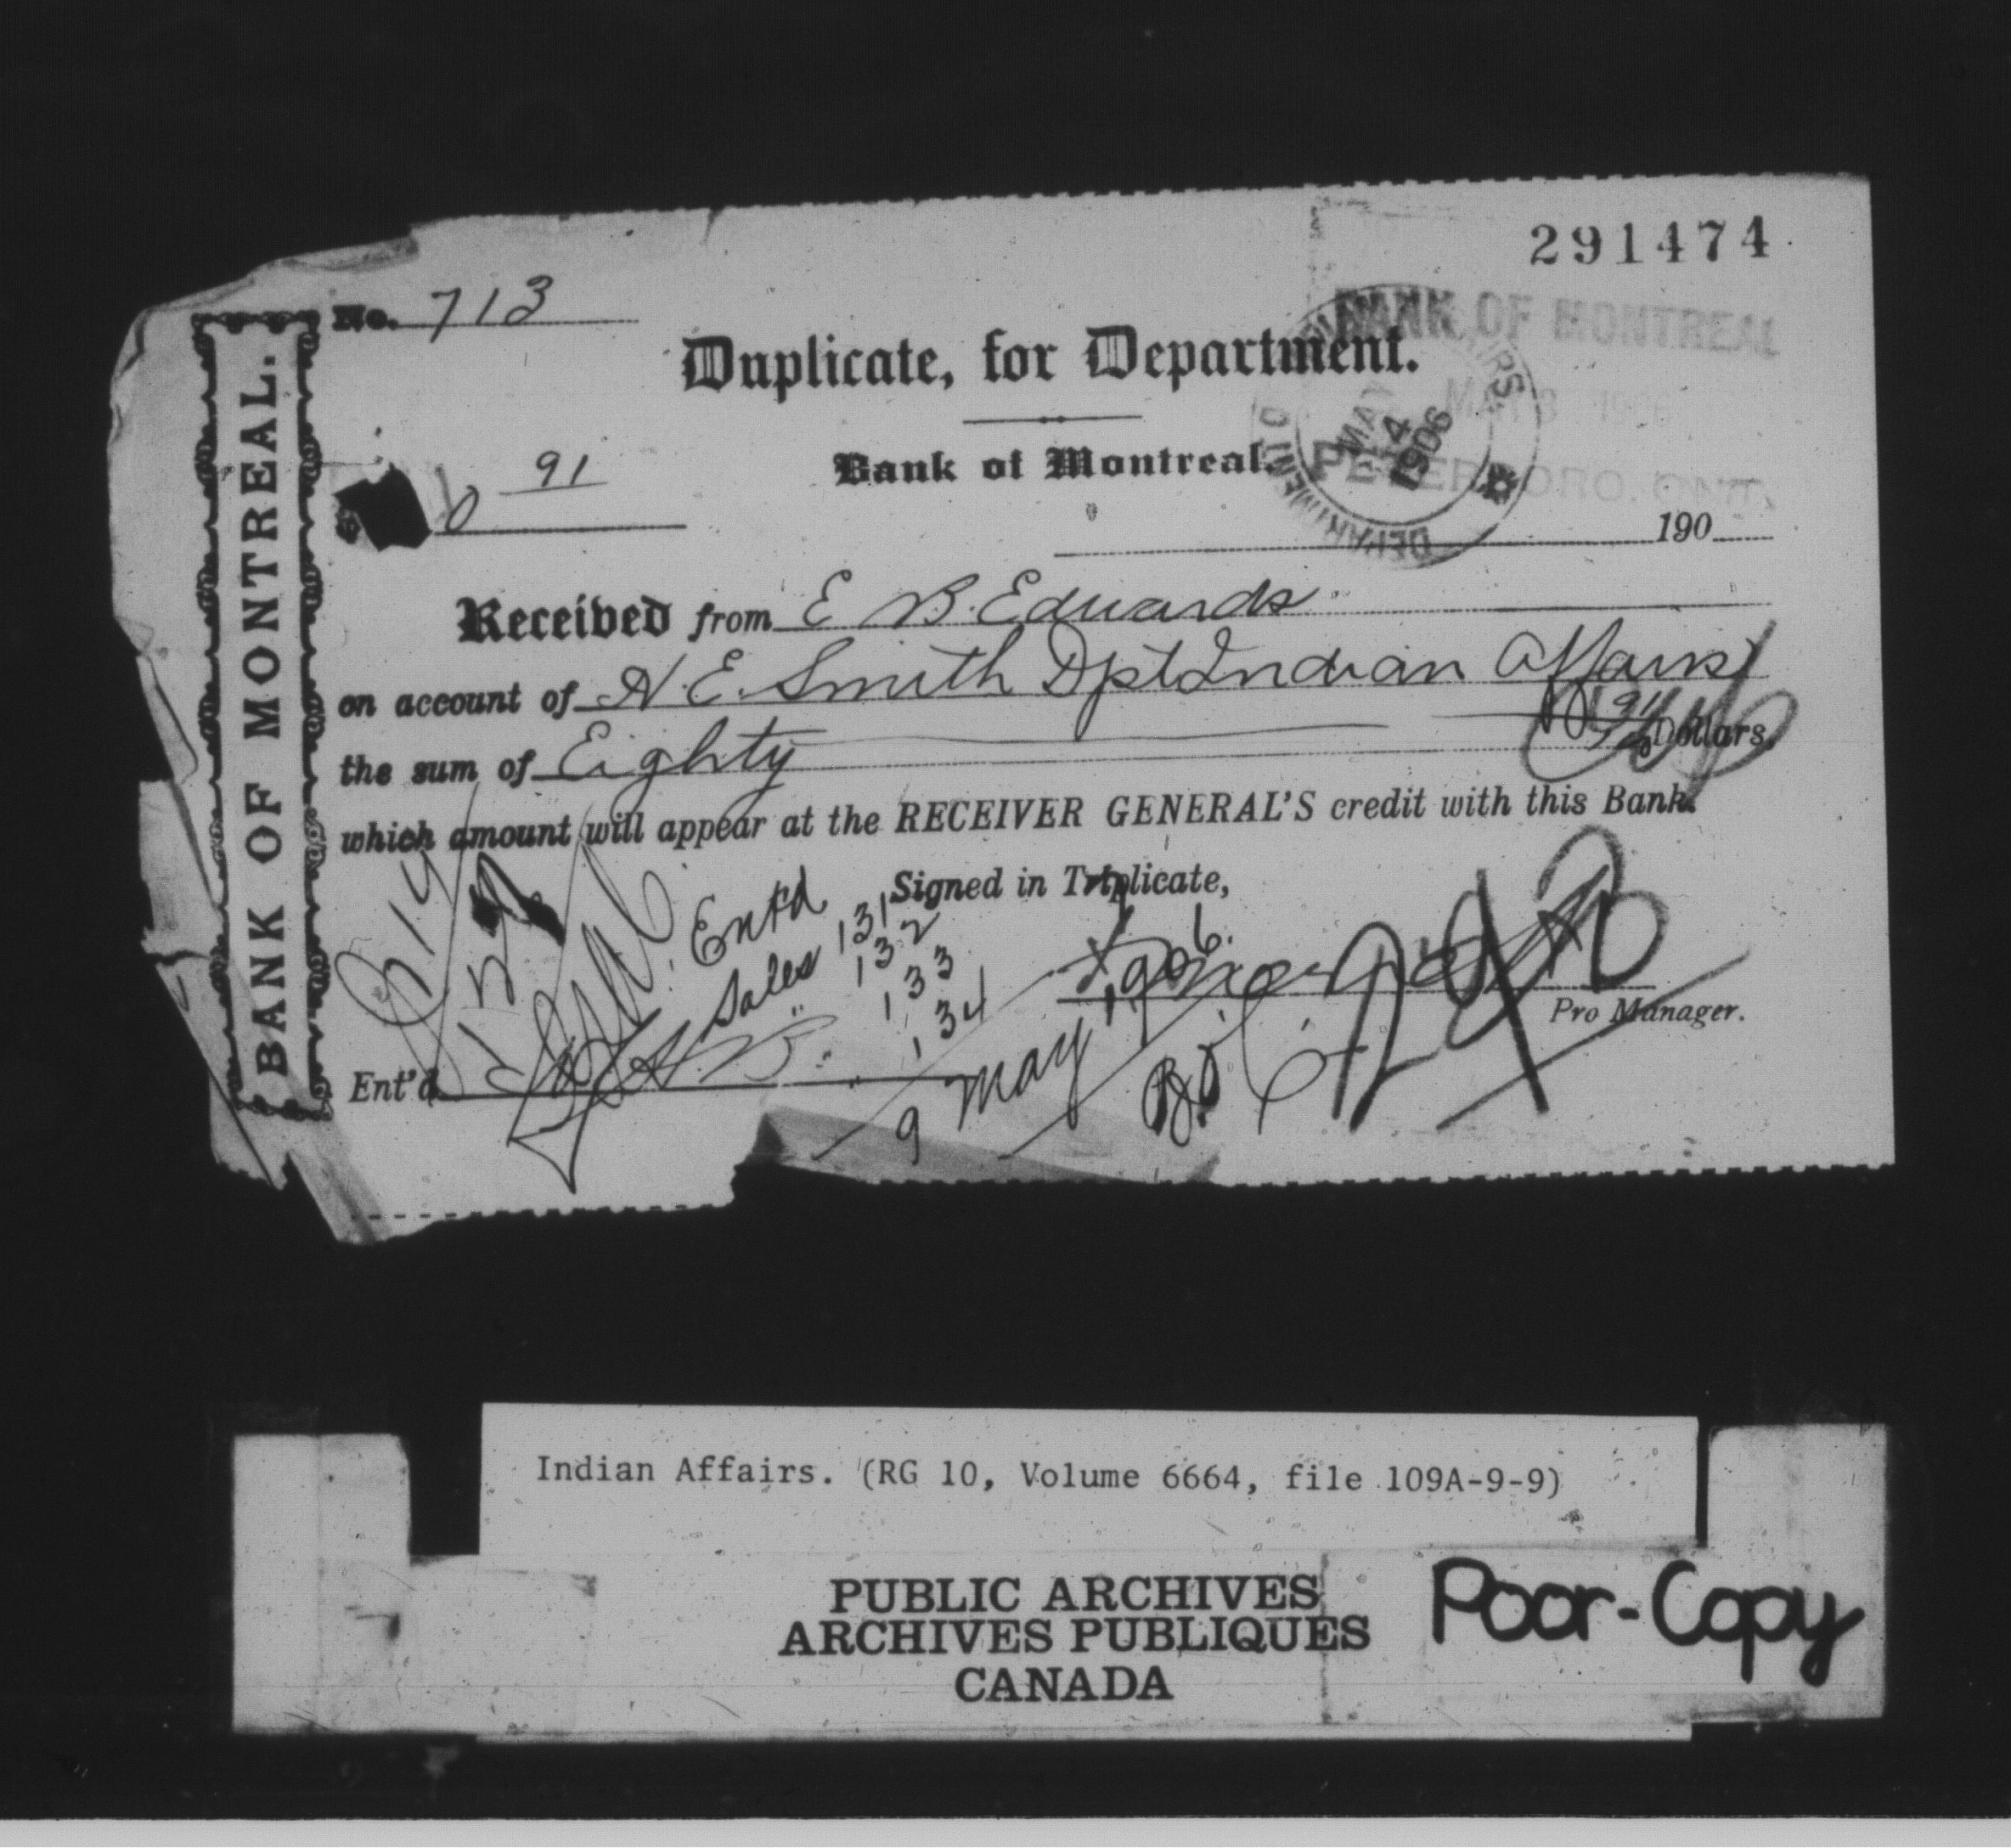 291474
No. 713
BANK OF MONTREAL
MAY 3 1906
PETERBORO, ONT.
Duplicate, for Department.
MAY 4 1906
Bank of Montreal.
$ 0 91
190
Received from E B. Edwards
on account of H. E. Smith Dpt Indian Affairs
the sum of Eighty 91 Dollars,
which amount will appear at the RECEIVER GENERAL'S credit with this Bank.
Signed in Triplicate,
Entd
Sales 131
" 132
133
134
Pro Manager.
Ent'd
9 May 1906.
BANK OF MONTREAL.
Indian Affairs. (RG 10, Volume 6664, file 109A-9-9)
PUBLIC ARCHIVES
ARCHIVES PUBLIQUES
CANADA
Poor-Copy